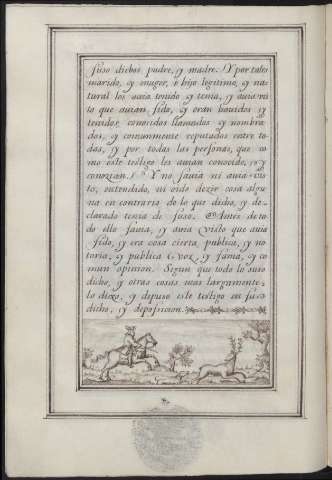 suso dichos padre, y madre. Y por tales
marido, y muger, e hijo legitimo, y na-
tural los auia tenido y tenia, y auia vis-
to que auian sido, y eran hauidos y
tenidos, conocidos llamados y nombra-
dos, y comunmente reputados entre to-
das, y por todas las personas, que co
mo este testigo les auian conocido, y
conozian. Y no sauia ni auia vis-
to, entendido, ni oido dezir cosa algu
na en contrario de lo que dicho, y de-
clarado tenia de suso. Antes de to
do ello fama, y auia visto que auia
sido, y era cosa cierta, publica, y no
toria, y publica voz, y fama, y co
mun opinion. Segun que todo lo suso
dicho, y otras cosas mas largamente
lo dixo, y depuso este testigo en su
dicho, y deposicion.